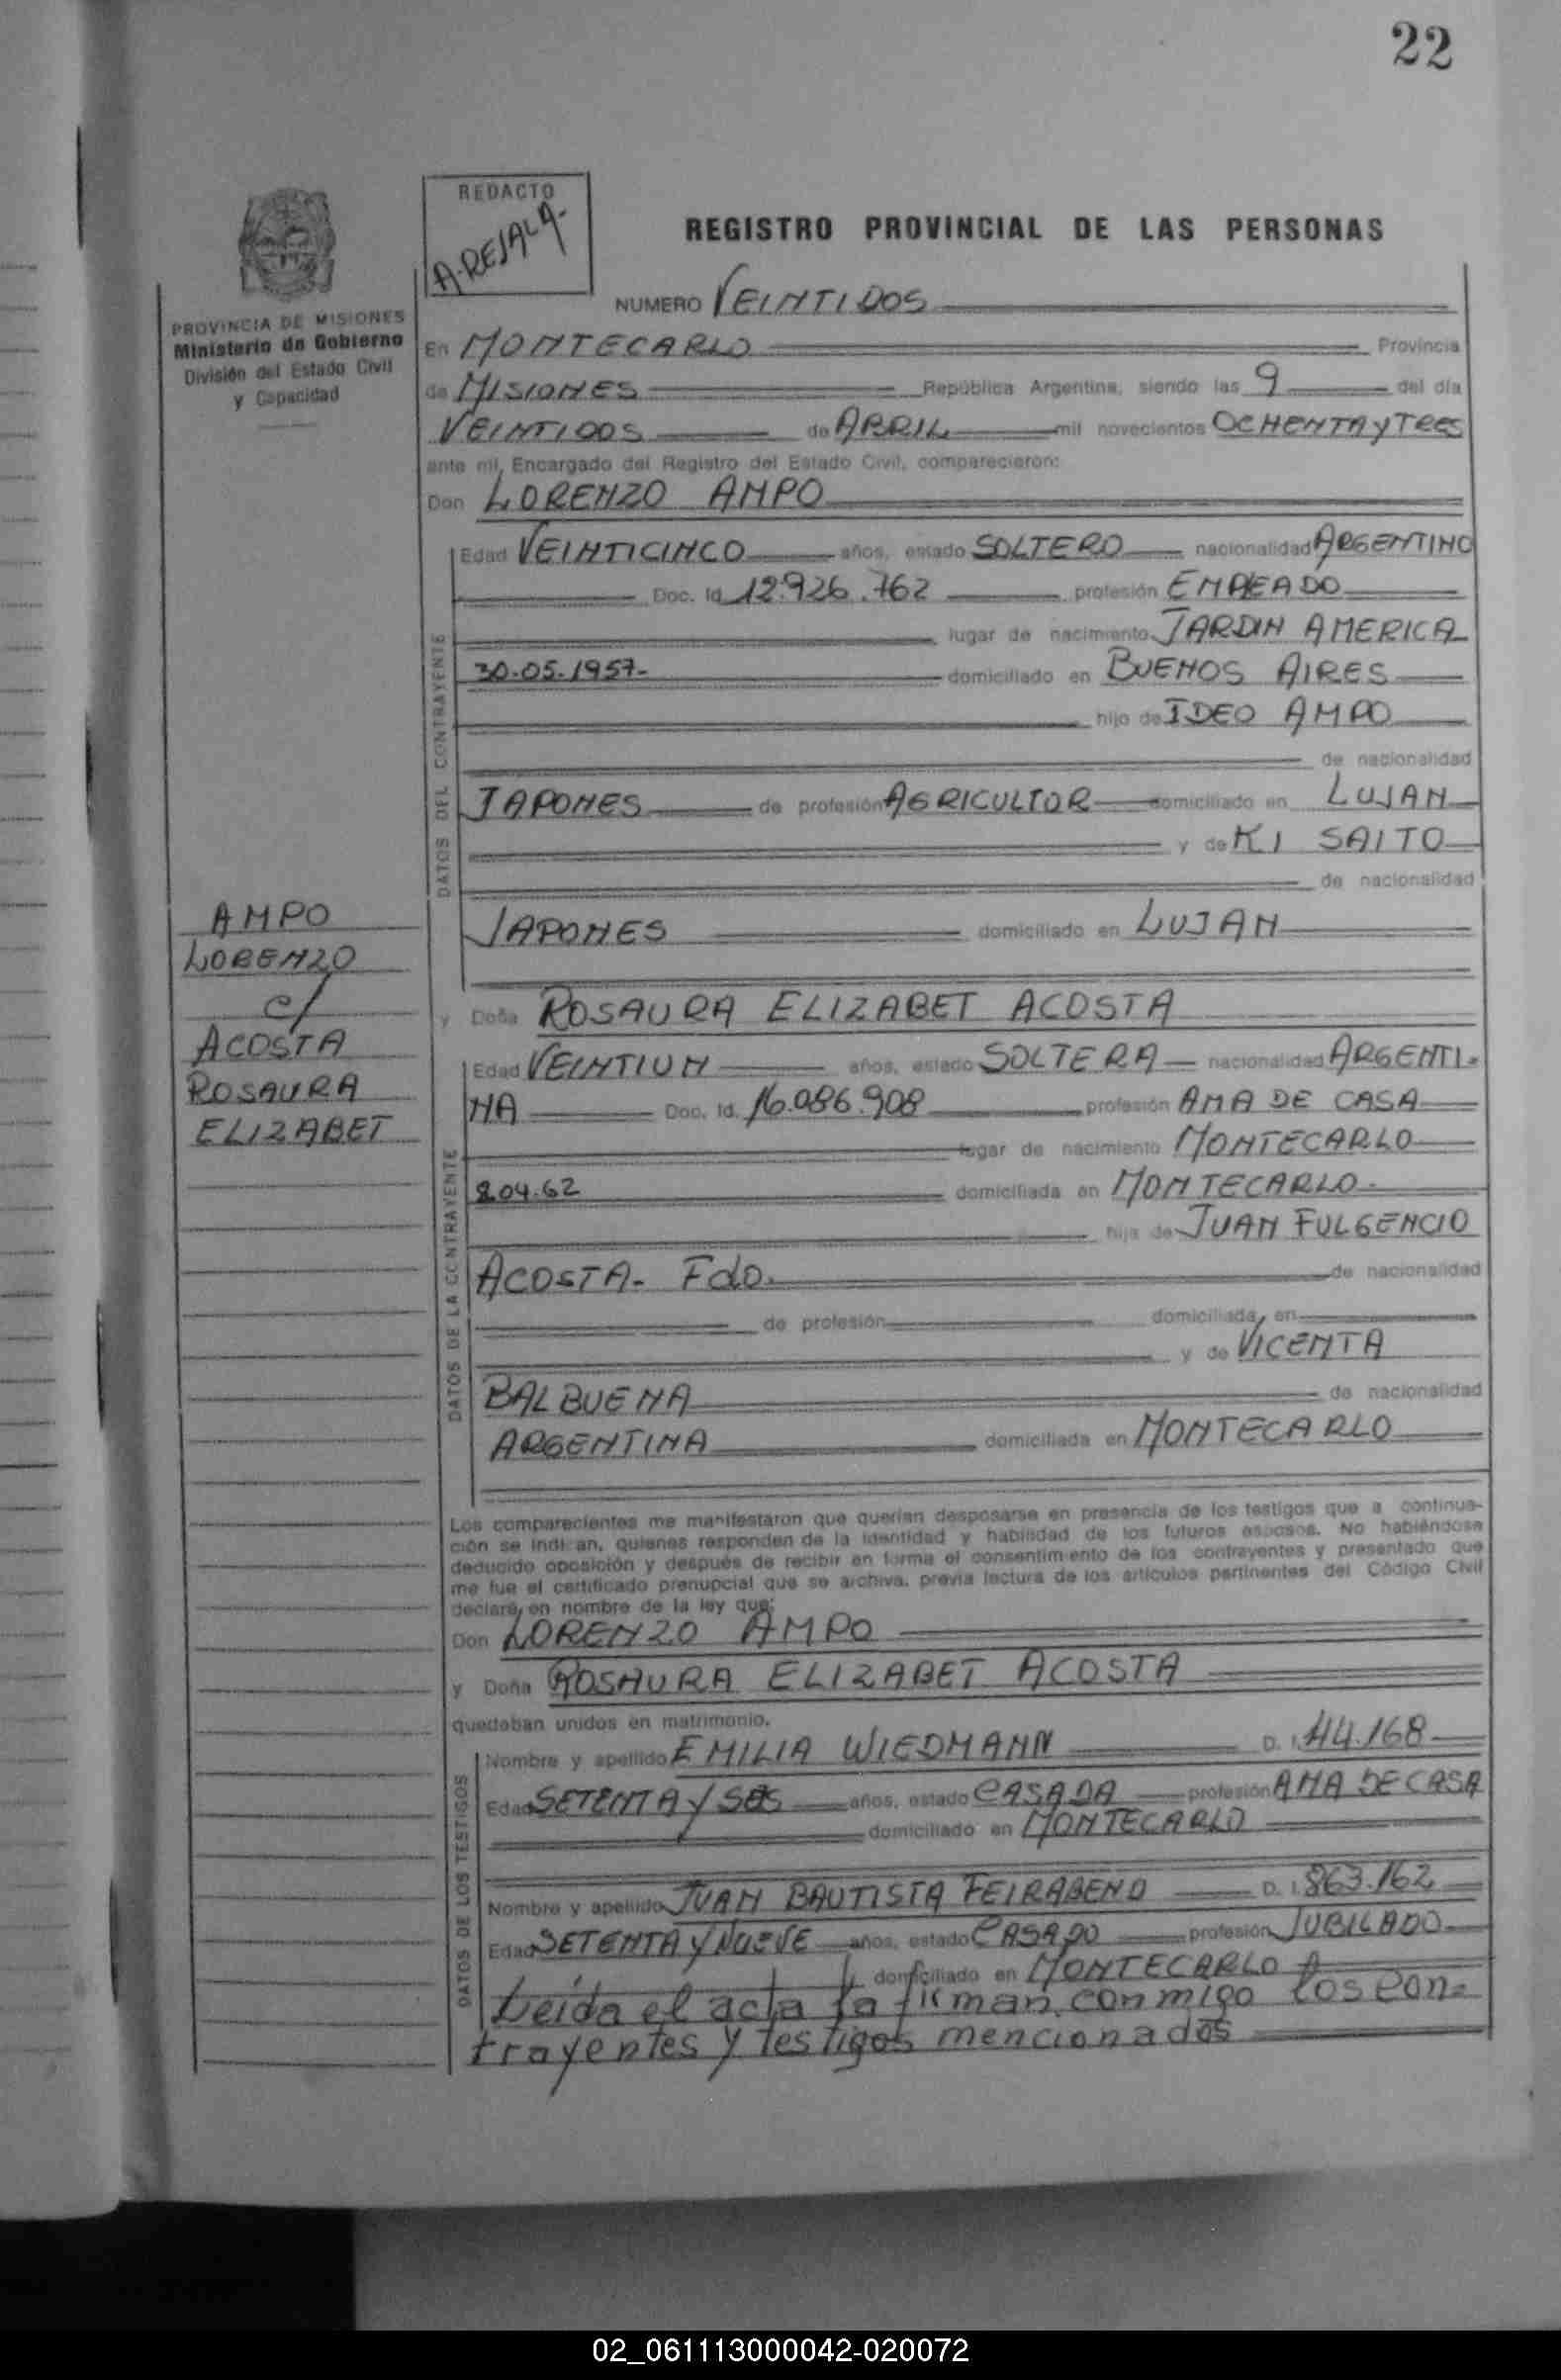 22
REDACTO
A. REJALA-
REGISTRO PROVINCIAL DE LAS PERSONAS
NUMERO VEINTIDOS
PROVINCIA DE MISIONES
Ministerio de Gobierno
División del Estado Civil
y Capacidad
En MONTECARLO Provincia
de MISIONES República Argentina, siendo las 9 del día
VEINTIDOS de ABRIL mil novecientos OCHENTA y TRES
ante mí, Encargado del Registro del Estado Civil, comparecieron:
Don LORENZO AMPO
DATOS DEL CONTRAYENTE
Edad VEINTICINCO años, estado SOLTERO nacionalidad ARGENTINO
Doc. Id. 12.926.762 profesión EMPLEADO
lugar de nacimiento JARDIN AMERICA
30-05-1957- domiciliado en BUENOS AIRES
hijo de IDEO AMPO
de nacionalidad
JAPONES de profesión AGRICULTOR domiciliado en LUJAN
y de KI SAITO
de nacionalidad
JAPONES domiciliado en LUJAN
AMPO
LORENZO
c/
ACOSTA
ROSAURA
ELIZABET
y Doña ROSAURA ELIZABET ACOSTA
DATOS DE LA CONTRAYENTE
Edad VEINTIUN años, estado SOLTERA nacionalidad ARGENTI-
NA Doc. Id. 16.086.908 profesión AMA DE CASA
lugar de nacimiento MONTECARLO
8.04.62 domiciliada en MONTECARLO.
hija de JUAN FULGENCIO
ACOSTA- Fdo. de nacionalidad
de profesión domiciliada en
y de VICENTA
BALBUENA de nacionalidad
ARGENTINA domiciliada en MONTECARLO
Los comparecientes me manifestaron que querían desposarse en presencia de los testigos que a continua-
ción se indican, quienes responden de la identidad y habilidad de los futuros esposos. No habiéndose
deducido oposición y después de recibir en forma el consentimiento de los contrayentes y presentado que
me fue el certificado prenupcial que se archiva, previa lectura de los artículos pertinentes del Código Civil
declaré, en nombre de la ley que:
Don LORENZO AMPO
y Doña ROSAURA ELIZABET ACOSTA
quedaban unidos en matrimonio.
DATOS DE LOS TESTIGOS
Nombre y apellido EMILIA WIEDMANN D. I. 44.168
Edad SETENTA y años, estado CASADA profesión AMA DE CASA
domiciliado en MONTECARLO
Nombre y apellido JUAN BAUTISTA FEIRABEND D. I. 863.162
Edad SETENTA y NUEVE años, estado CASADO profesión JUBILADO
domiciliado en MONTECARLO
Leída el acta la firman conmigo los con-
trayentes y testigos mencionados
02_061113000042-020072